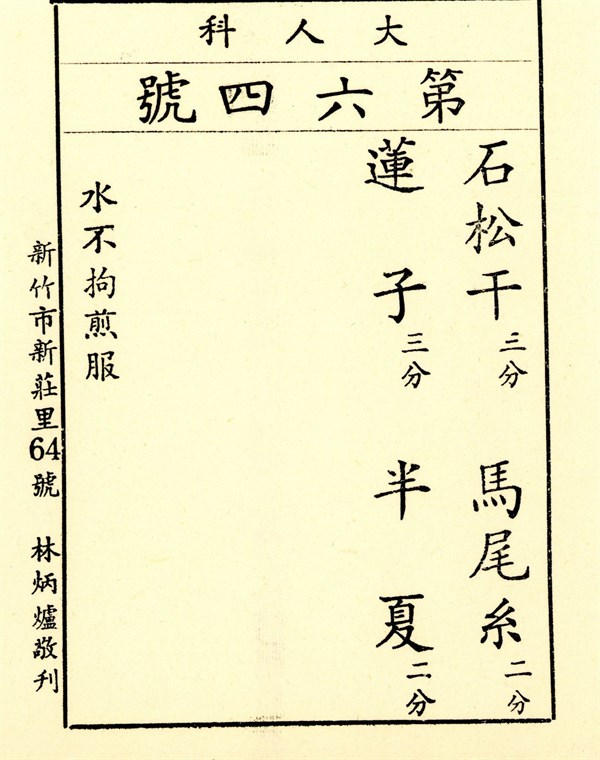 大人科
第六四號
石松干三分 馬尾糸二分
蓮子三分 半夏二分
水不拘煎服
新竹市新莊里64號 林炳爐敬刋